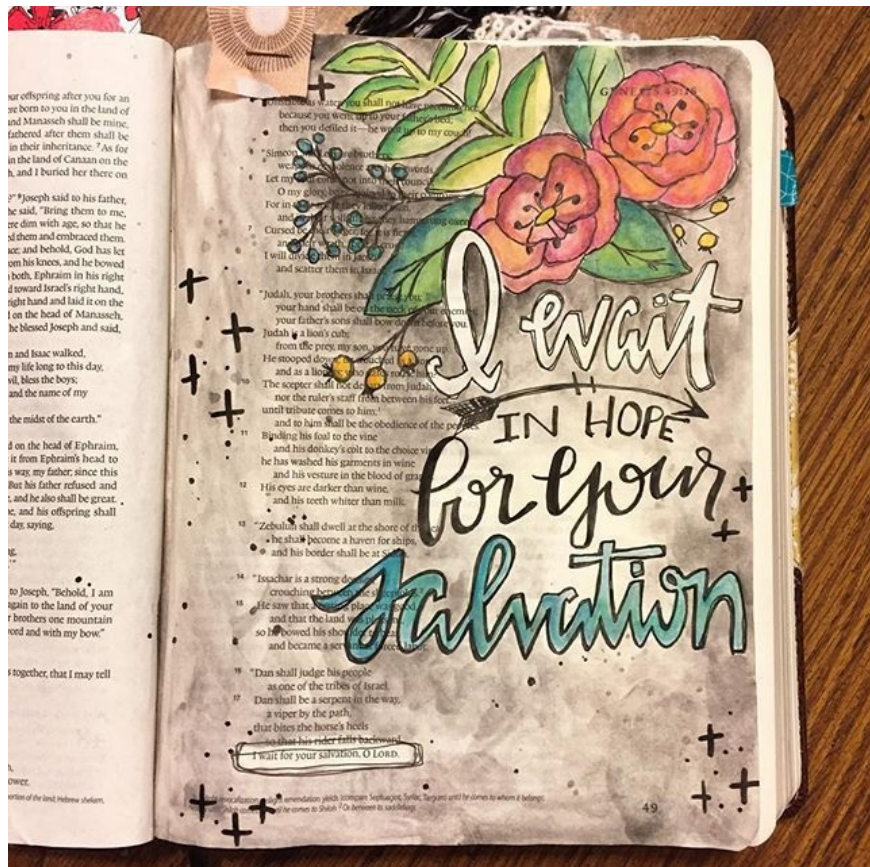 our offspring after you for an
re born to you in the land of
nd Manasseh shall be mine,
fathered after them shall be
in their inheritance. ⁷As for
in the land of Canaan on the
h, and I buried her there on
?" ⁹Joseph said to his father,
he said, "Bring them to me,
ere dim with age, so that he
d them and embraced them.
ace; and behold, God has let
om his knees, and he bowed
both, Ephraim in his right
d toward Israel's right hand,
right hand and laid it on the
on the head of Manasseh,
he blessed Joseph and said,
m and Isaac walked,
my life long to this day,
vil, bless the boys;
and the name of my
the midst of the earth."
d on the head of Ephraim,
it from Ephraim's head to
s way, my father; since this
But his father refused and
e, and he also shall be great.
e, and his offspring shall
day, saying,
to Joseph, "Behold, I am
again to the land of your
r brothers one mountain
word and with my bow."
s together, that I may tell
ower.
portion of the land; Hebrew shekem,
GENESIS 49:18
as water, you shall not have
because you went up to your father's bed,
then you defiled it—he went up to my couch!
5 "Simeon and Levi are brothers;
of violence are their swords.
6 Let my not into their council;
O my glory, be
For in
and
7 Cursed be their anger, for it is fierce,
I will divide them in Jacob
and scatter them in Israel.
8 "Judah, your brothers shall praise you;
your hand shall be on the neck of your enemies;
your father's sons shall bow down before you.
9 Judah is a lion's cub;
from the prey, my son, you have gone up.
He stooped down; he crouched as a lion
and as a lioness; who dares rouse him?
10 The scepter shall not depart from Judah,
nor the ruler's staff from between his feet,
until tribute comes to him;
and to him shall be the obedience of the peoples.
11 Binding his foal to the vine
and his donkey's colt to the choice vine,
he has washed his garments in wine
and his vesture in the blood of grapes.
12 His eyes are darker than wine,
and his teeth whiter than milk.
13 "Zebulun shall dwell at the shore of the sea;
he shall become a haven for ships,
and his border shall be at Sidon.
14 "Issachar is a strong donkey,
crouching between the sheepfolds.
15 He saw that a resting place was good,
and that the land was pleasant,
so he bowed his shoulder to bear,
and became a servant at forced labor.
16 "Dan shall judge his people
as one of the tribes of Israel.
17 Dan shall be a serpent in the way,
a viper by the path,
that bites the horse's heels
so that his rider falls backward.
I wait for your salvation, O LORD.
I wait
IN HOPE
for your
salvation
emendation yields (compare Septuagint, Syriac, Targum) until he comes to whom it belongs;
until he comes to Shiloh ² Or between its saddlebags
49